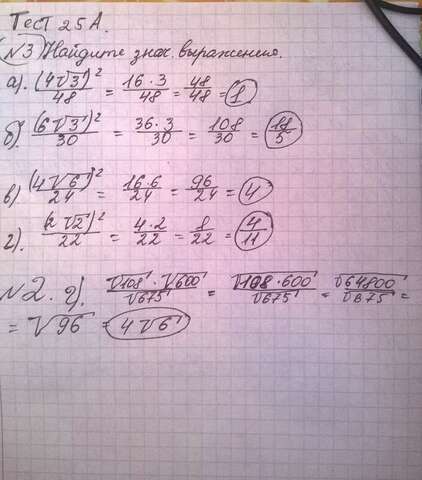 Тест 25А.
№3 Найдите знач. выражения.
а). (4√3)²/48 = 16·3/48 = 48/48 = 1
б). (6√3)²/30 = 36·3/30 = 108/30 = 18/5
в). (4√6)²/24 = 16·6/24 = 96/24 = 4
г). (2√2)²/22 = 4·2/22 = 8/22 = 4/11
№2. г). √108·√600/√675 = √108·600/√675 = √64800/√675 =
= √96 = 4√6